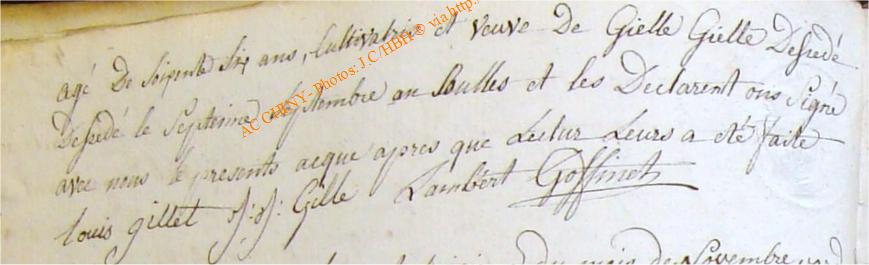 agé De Soipente Six ans, Cultivatrice et veuve De Gielle Gielle Dessedé
Dessedé le Septieme Septembre an Bulles et les Declarent ons Signé
avec nous le presents acque apres que Lectur Leurs a eté faite
Louis gillet J: J: Gille Lambert Goffinet
AC CHINY - Photos: J.C/HBH © via http
du mois de Novembre